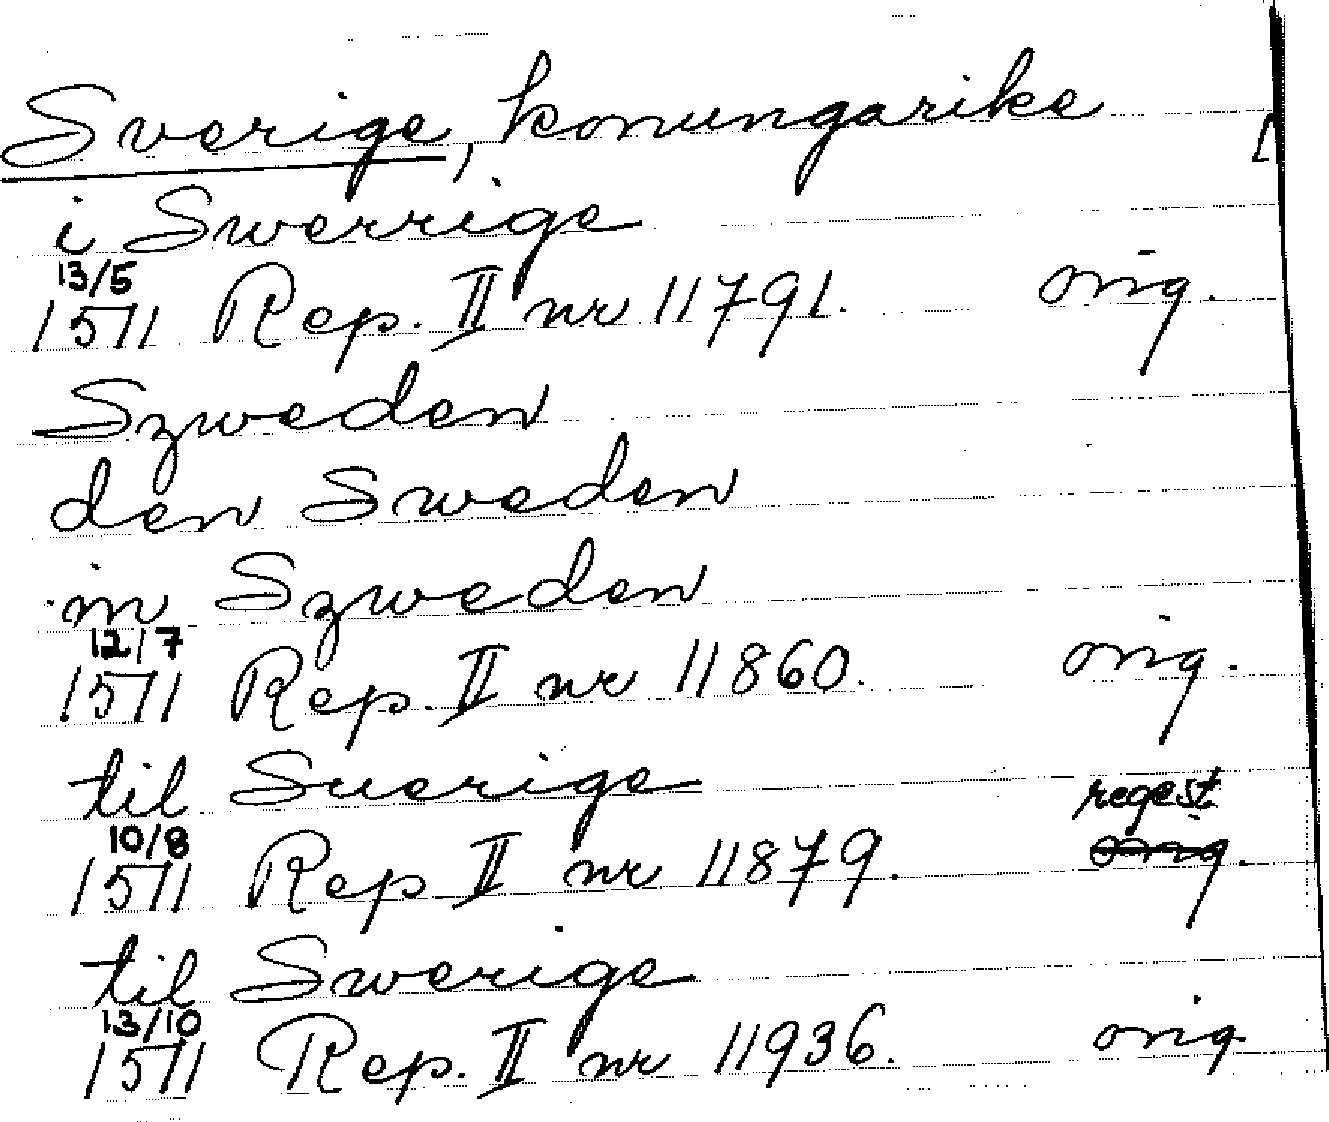 Sverige, konungarike
i Swerrige
13/5
1511 Rep. II nr 11791. orig.
Szweden
den Sweden
in Szweden
12/7
1511 Rep. II nr 11860. orig.
til Suerige
regest.
10/8
1511 Rep II nr 11879. orig.
til Swerige
13/10
1511 Rep. II nr 11936. orig